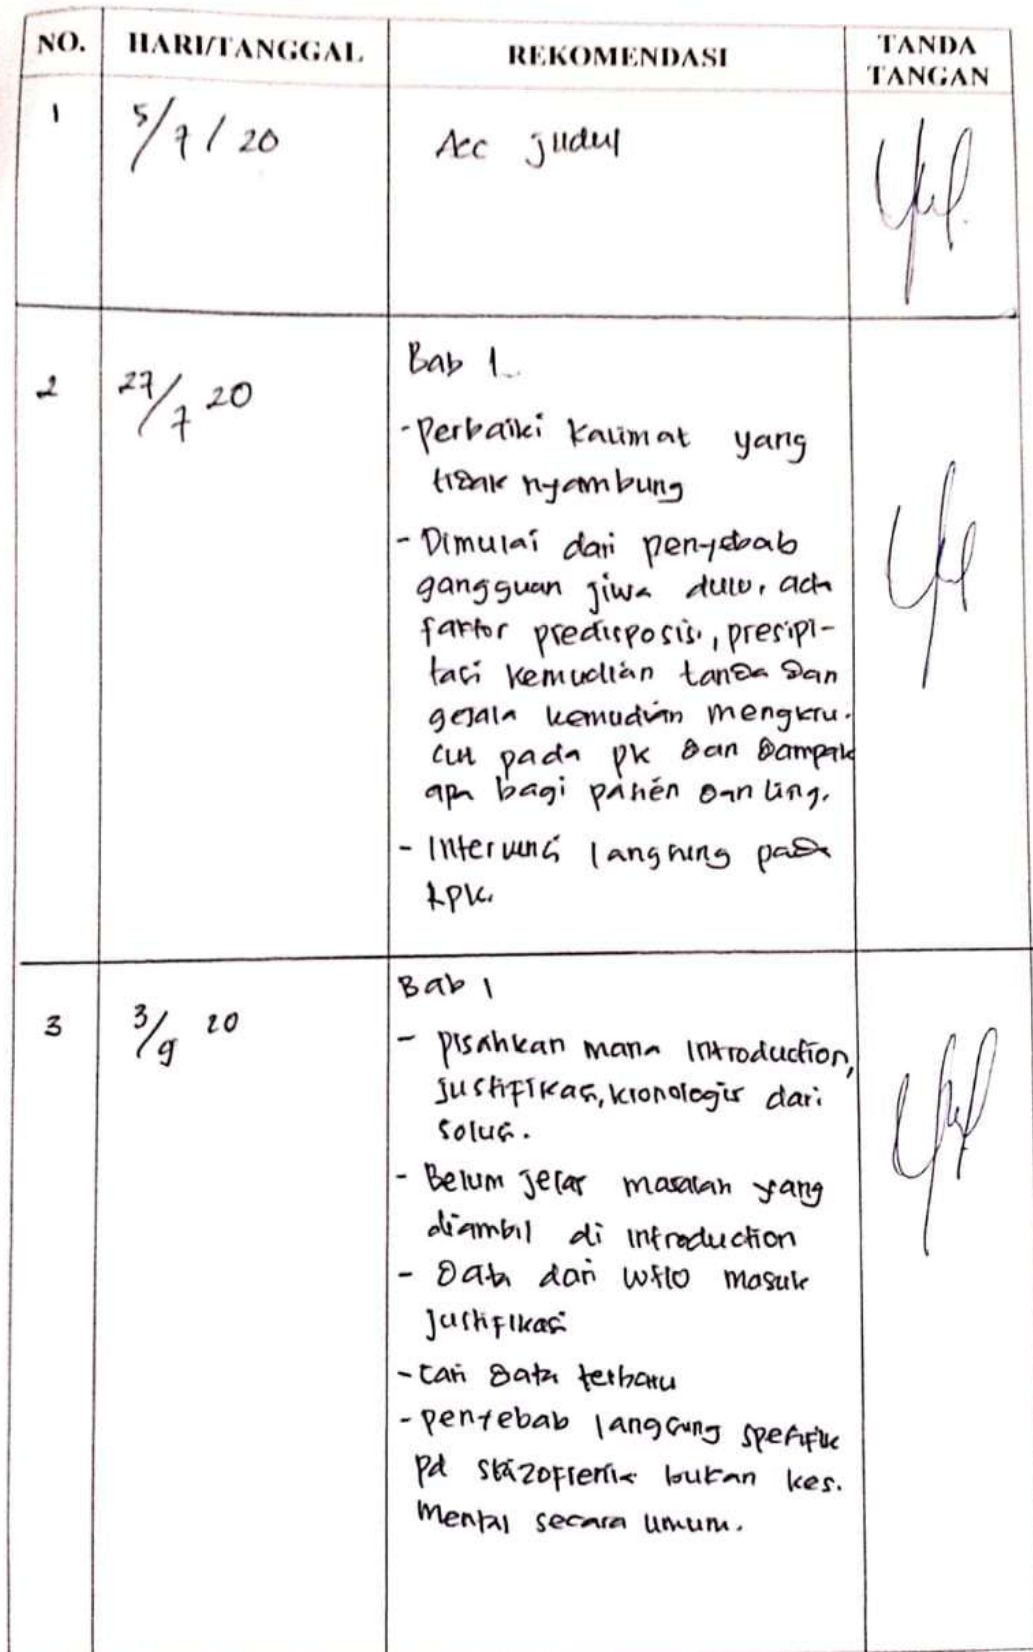 NO. HARI/TANGGAL REKOMENDASI TANDA TANGAN
1 5/7/20 Acc judul
2 27/7 20 Bab 1
- Perbaiki kalimat yang
tidak nyambung
- Dimulai dari penyebab
gangguan jiwa dulu, ada
faktor predisposisi, presipi-
tasi kemudian tanda dan
gejala kemudian mengkru-
cut pada pk dan dampak
apa bagi pasien dan ling.
- Intervensi langsung pada
3 3/9 20 Bab 1
- pisahkan mana Introduction,
justifikasi, kronologis dari
solusi.
- Belum jelas masalah yang
diambil di introduction
- Data dari WHO masuk
justifikasi
- Cari data terbaru
- penyebab langsung spesifik
pd skizofrenia bukan kes.
Mental secara umum.